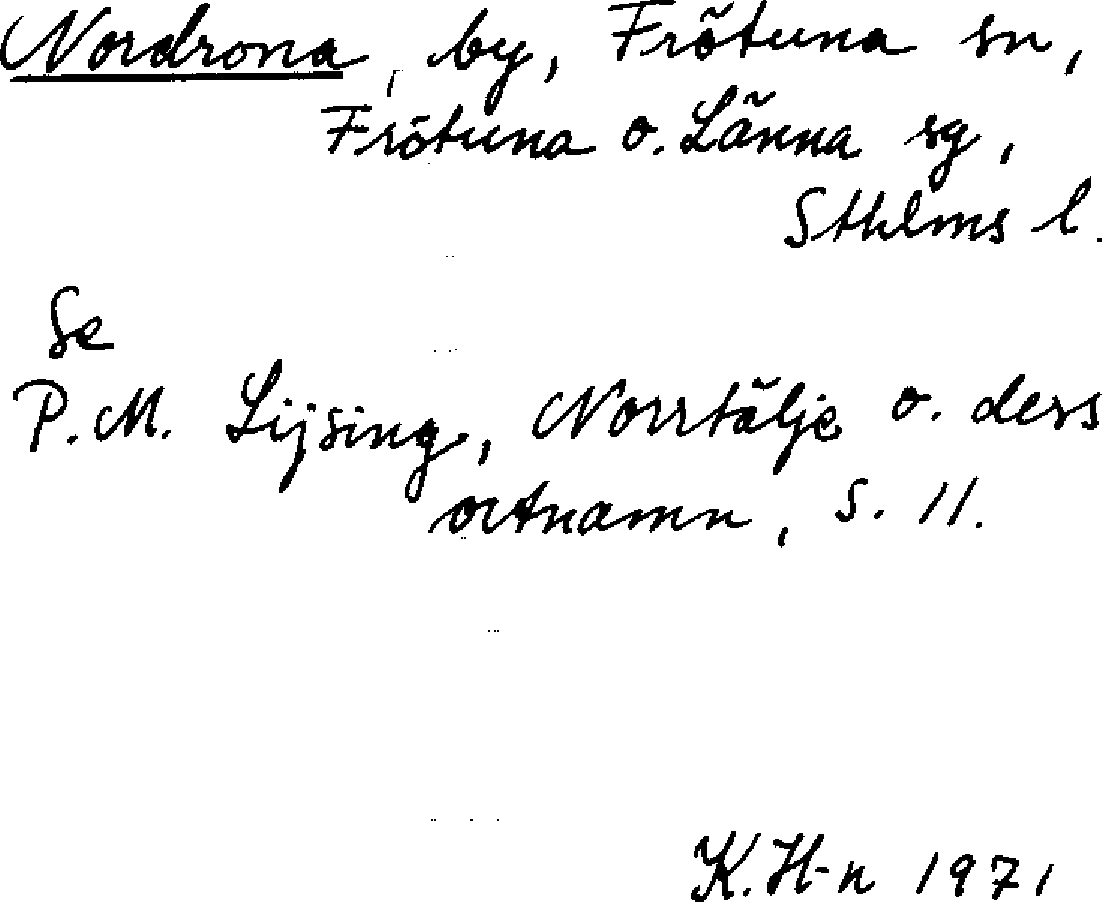 Nordrona, by, Frötuna sn,
Frötuna o. Länna sg,
Sthlms l.
Se
P.M. Lijsing, Norrtälje o. dess
ortnamn, s. 11.
K. H-n 1971